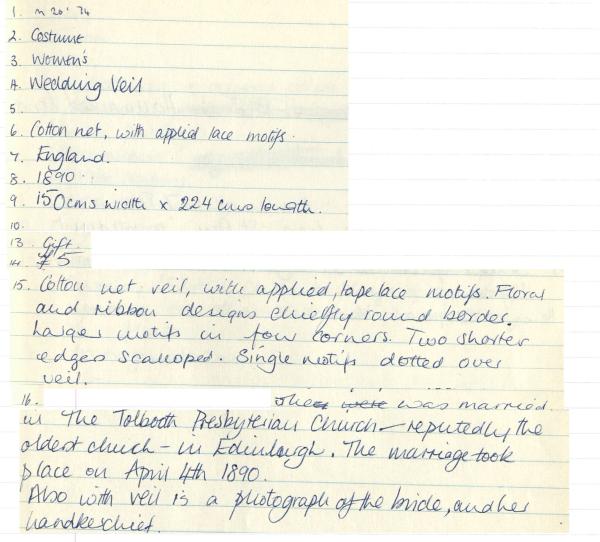 1. M 20' 74
2. Costume
3. Women's
4. Wedding Veil
5.
6. Cotton net, with applied lace motifs.
7. England.
8. 1890
9. 150cms width x 224 cms length.
10.
13. Gift.
14. £5
15. Cotton net veil, with applied, tape lace motifs. Floral
and ribbon designs chiefly round border.
Larger motifs in four corners. Two shorter
edges scalloped. Single motifs dotted over
veil.
16. She were was married
in The Tolbooth Presbyterian Church - reputedly the
oldest church - in Edinburgh. The marriage took
place on April 4th 1890.
Also with veil is a photograph of the bride, and her
handkerchief.